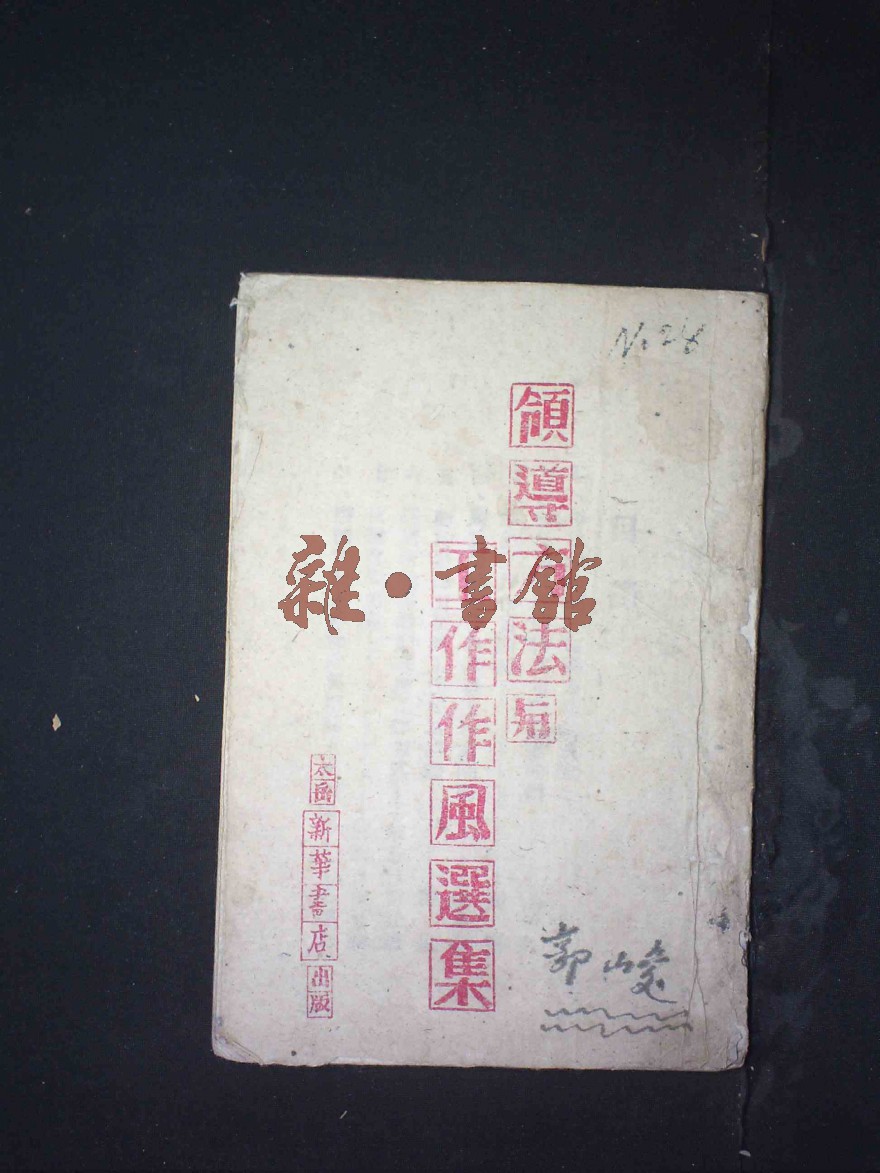 No 24
領導方法与
工作作風選集
太岳新華書店出版
雜·書館